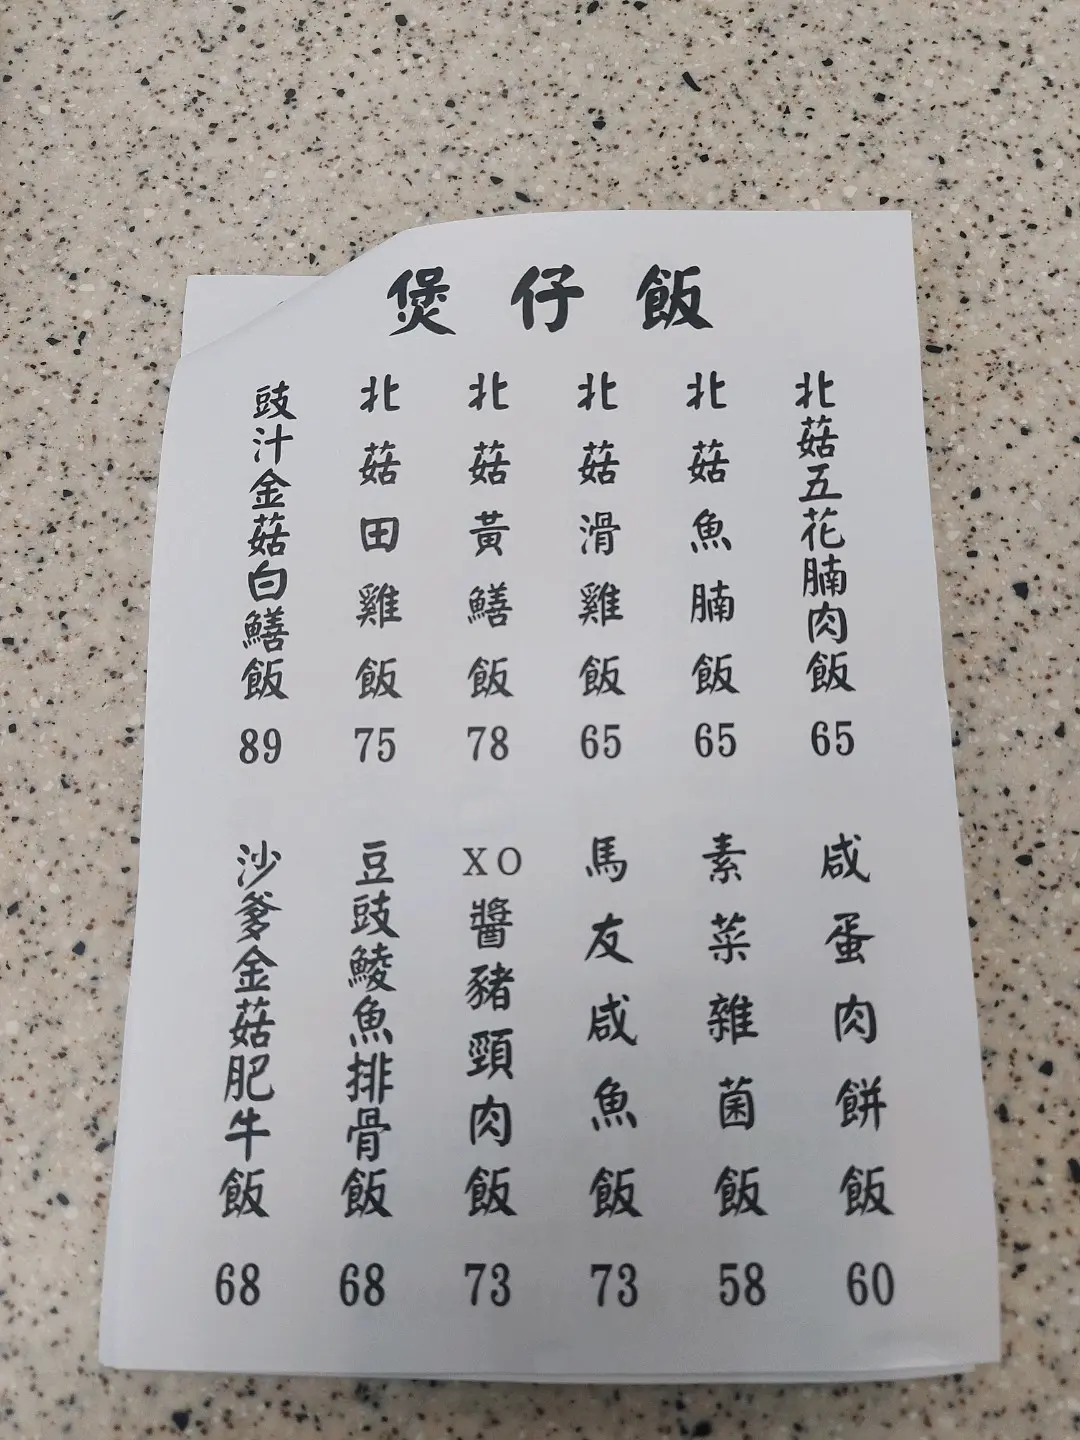 煲仔飯
北菇五花腩肉飯
65
北菇魚腩飯
65
北菇滑雞飯
65
北菇黃鱔飯
78
北菇田雞飯
75
豉汁金菇白鱔飯
89
咸蛋肉餅飯
60
素菜雜菌飯
58
馬友咸魚飯
73
XO醬豬頸肉飯
73
豆豉鯪魚排骨飯
68
沙爹金菇肥牛飯
68